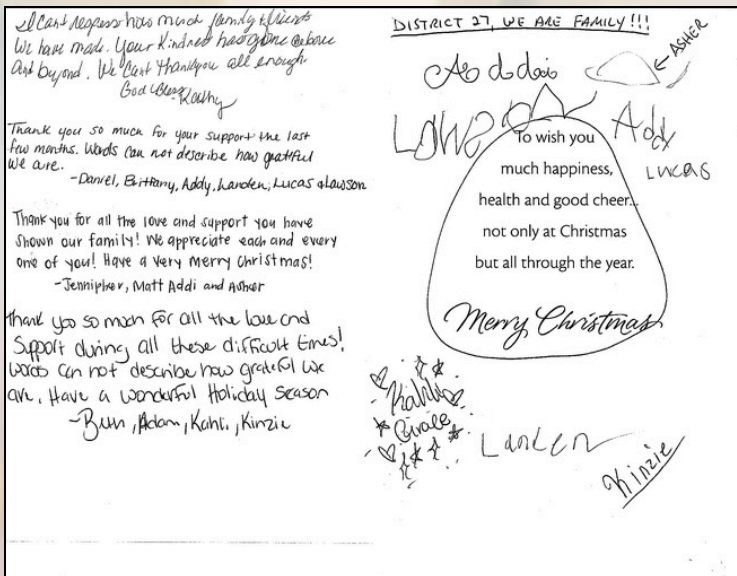 I Cant express how much family & friends
We have made. Your Kindness has gone above
And beyond. We Cant Thankyou all enough
God Bless
-Kathy
Thank you so much for your support the last
few months. Words can not describe how gratful
we are.
-Daniel, Brittany, Addy, Landen, Lucas & Lawson
Thank you for all the love and support you have
shown our family! We appreciate each and every
one of you! Have a very merry christmas!
-Jennipher, Matt Addi and Asher
Thank you so much for all the love and
Support during all these difficult times!
words can not describe how grateful we
are. Have a wonderful Holiday Season
~ , Adam, Kahli, Kinzie
DISTRICT 27, WE ARE FAMILY!!!
ASHER
Addy
LUCAS
To wish you
much happiness,
health and good cheer...
not only at Christmas
but all through the year.
Merry Christmas
Kahli
Grace
Landen
Kinzie